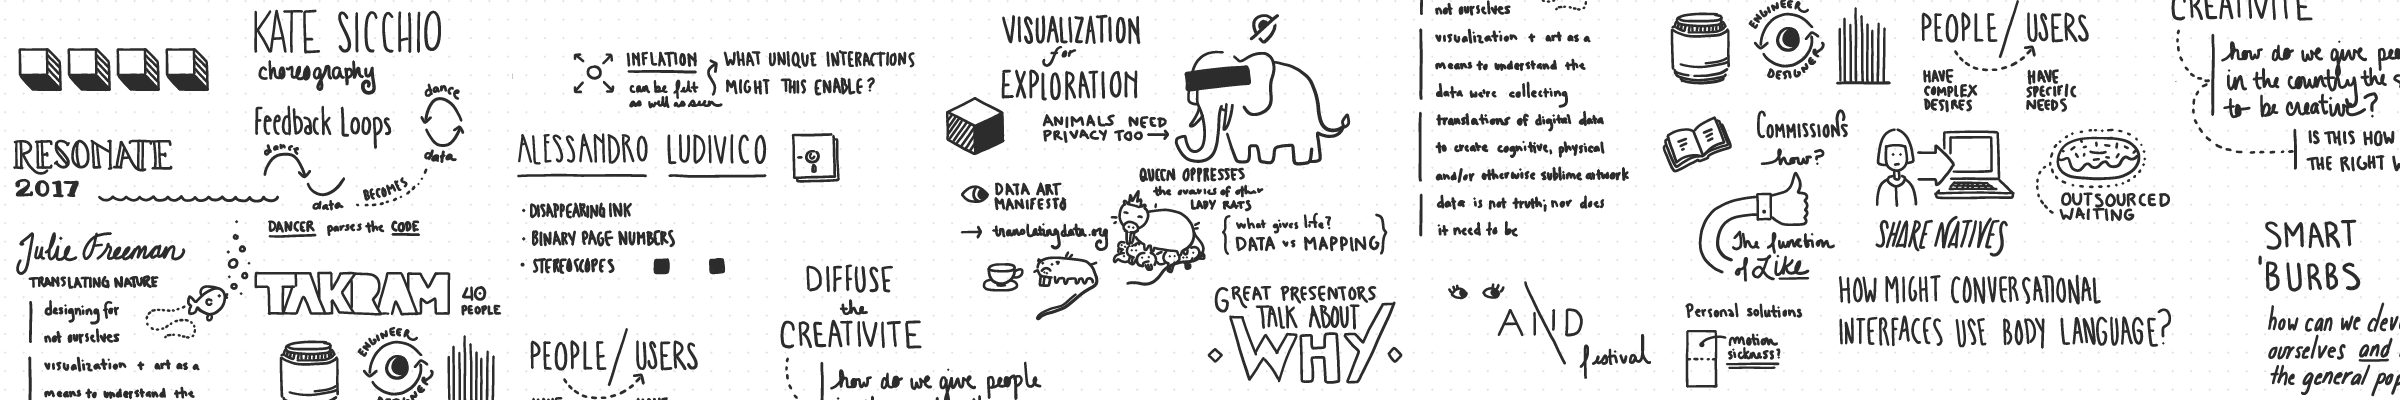 RESONATE
2017
Julie Freeman
TRANSLATING NATURE
designing for
not ourselves
visualization + art as a
means to understand the
KATE SICCHIO
choreography
Feedback Loops
dance
data
dance
data
BECOMES
DANCER parses the CODE
TAKRAM
40
PEOPLE
ENGINEER
DESIGNER
INFLATION
can be felt
as well as seen
WHAT UNIQUE INTERACTIONS
MIGHT THIS ENABLE?
ALESSANDRO LUDIVICO
· DISAPPEARING INK
· BINARY PAGE NUMBERS
· STEREOSCOPES
PEOPLE/USERS
HAVE
HAVE
DIFFUSE
the
CREATIVITE
how do we give people
VISUALIZATION
for
EXPLORATION
ANIMALS NEED
PRIVACY TOO →
DATA ART
MANIFESTO
→ translatingdata.org
QUEEN OPPRESSES
the ovaries of other
LADY RATS
{ what gives life?
DATA vs MAPPING }
GREAT PRESENTORS
TALK ABOUT
WHY
not ourselves
visualization + art as a
means to understand the
data we're collecting
translations of digital data
to create cognitive, physical
and/or otherwise sublime artwork
data is not truth; nor does
it need to be
AND
festival
ENGINEER
DESIGNER
COMMISSIONS
how?
The function
of Like
Personal solutions
motion
sickness?
PEOPLE/USERS
HAVE
COMPLEX
DESIRES
HAVE
SPECIFIC
NEEDS
SHARE NATIVES
OUTSOURCED
WAITING
HOW MIGHT CONVERSATIONAL
INTERFACES USE BODY LANGUAGE?
CREATIVITE
how do we give peo
in the country the s
to be creative?
IS THIS HOW
THE RIGHT
SMART
'BURBS
how can we deve
ourselves and
the general pop